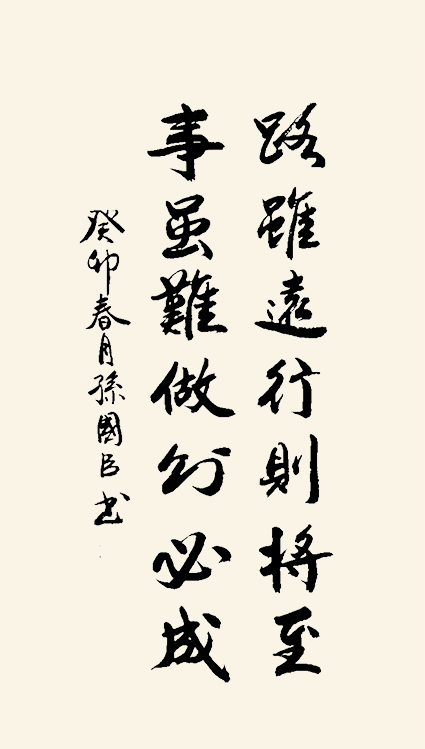 路雖遠行則将至
事虽難做則必成
癸卯春月孫國臣书